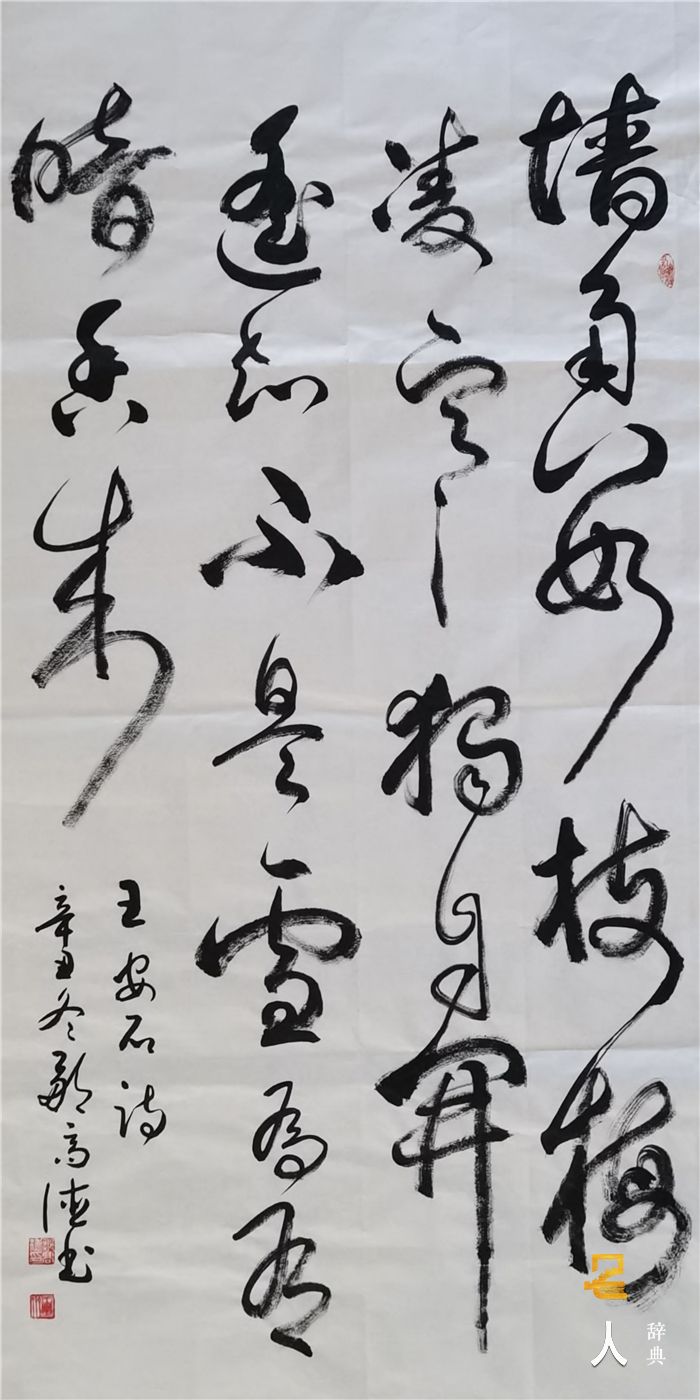 墙角数枝梅
凌寒獨自開
遥知不是雪为有
暗香来
王安石诗
辛丑冬高德书
名人
辞典